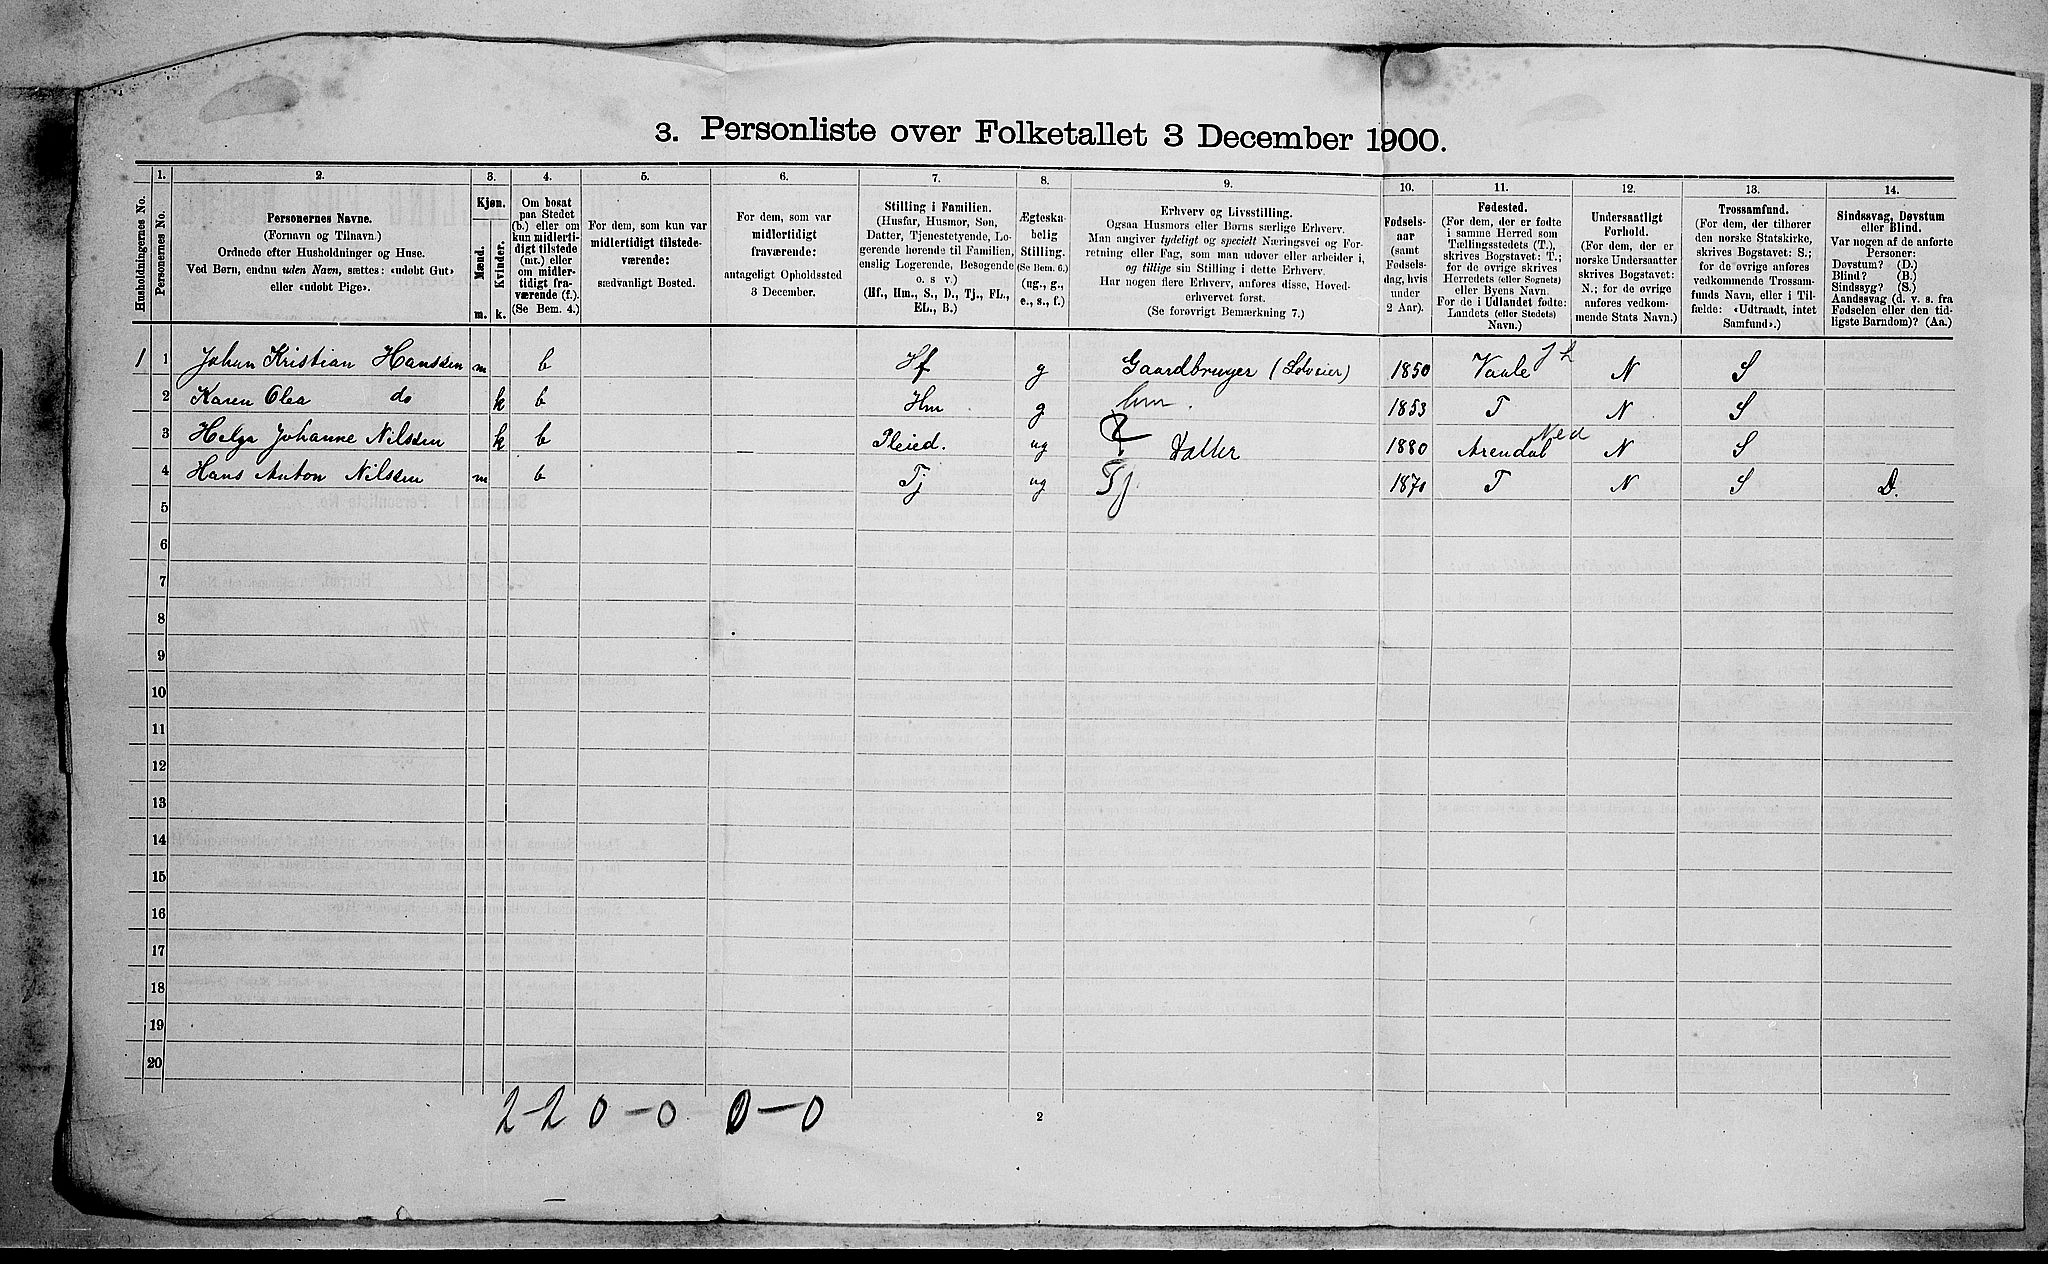 3. Personliste over Folketallet 3 December 1900.
Husholdningernes No.
1.
Personernes No.
2.
Personernes Navne.
(Fornavn og Tilnavn.)
Ordnede efter Husholdninger og Huse.
Ved Børn, endnu uden Navn, sættes: «udøbt Gut»
eller «udøbt Pige».
3.
Kjøn.
Mænd.
m.
Kvinder.
k.
4.
Om bosat
paa Stedet
(b.) eller om
kun midlerti-
digt tilstede
(mt.) eller
om midler-
tidigt fra-
værende (f.).
(Se Bem. 4.)
5.
For dem, som kun var
midlertidigt tilstede-
værende:
sædvanligt Bosted.
6.
For dem, som var
midlertidigt
fraværende:
antageligt Opholdssted
3 December.
7.
Stilling i Familien.
(Husfar, Husmor, Søn,
Datter, Tjenestetyende, Lo-
gerende hørende til Familien,
enslig Logerende, Besøgende
o. s v.)
(Hf., Hm., S., D., Tj., FL.,
EL., B.)
8.
Ægteska-
belig
Stilling.
(Se Bem. 6.)
(ug., g.,
e., s., f.)
9.
Erhverv og Livsstilling.
Ogsaa Husmors eller Børns særlige Erhverv.
Man angiver tydeligt og specielt Næringsvei og For-
retning eller Fag, som man udøver eller arbeider i,
og tillige sin Stilling i dette Erhverv.
Har nogen flere Erhverv, anføres disse, Hoved-
erhvervet først.
(Se forøvrigt Bemærkning 7.)
10.
Fødsels-
aar
(samt
Fødsels-
dag, hvis
under
2 Aar).
11.
Fødested.
(For dem, der er fødte
i samme Herred som
Tællingsstedets (T.),
skrives Bogstavet: T.;
for de øvrige skrives
Herredets (eller Sognets)
eller Byens Navn.
For de i Udlandet fødte:
Landets (eller Stedets)
Navn.)
12.
Undersaatligt
Forhold.
(For dem, der er
norske Undersaatter
skrives Bogstavet:
N.; for de øvrige
anføres vedkom-
mende Stats Navn.)
13.
Trossamfund.
(For dem, der tilhører
den norske Statskirke,
skrives Bogstavet: S.;
for de øvrige anføres
vedkommende Trossam-
funds Navn, eller i Til-
fælde: «Udtraadt, intet
Samfund».)
14.
Sindssvag, Døvstum
eller Blind.
Var nogen af de anførte
Personer:
Døvstum? (D.)
Blind? (B.)
Sindssyg? (S.)
Aandssvag (d. v. s. fra
Fødselen eller den tid-
ligste Barndom)? (Aa.)
1 1 Johan Kristian Hanssen m b Hf g Gaardbruger (Selveier) 1850 Vaale N S
2 Karen Olea do k b Hm g Hm. 1853 T N S
3 Helga Johanne Nilssen k b Pleied. ug Datter 1880 Arendal Ned N S
4 Hans Anton Nilssen m b Tj ug Tj 1870 T N S D.
5
6
7
8
9
10
11
12
13
14
15
16
17
18
19
20
2-2 0-0 0-0
2